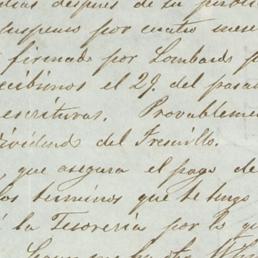 dias despues de su public
suspenso por cuatro mese
firmado por Lombardo p
recibimos el 29. del pasad
escrituras. Provablemen
dividendo del Fresnillo.
que asegura el pago de
los terminos que te tengo
á la Tesoreria por lo qu